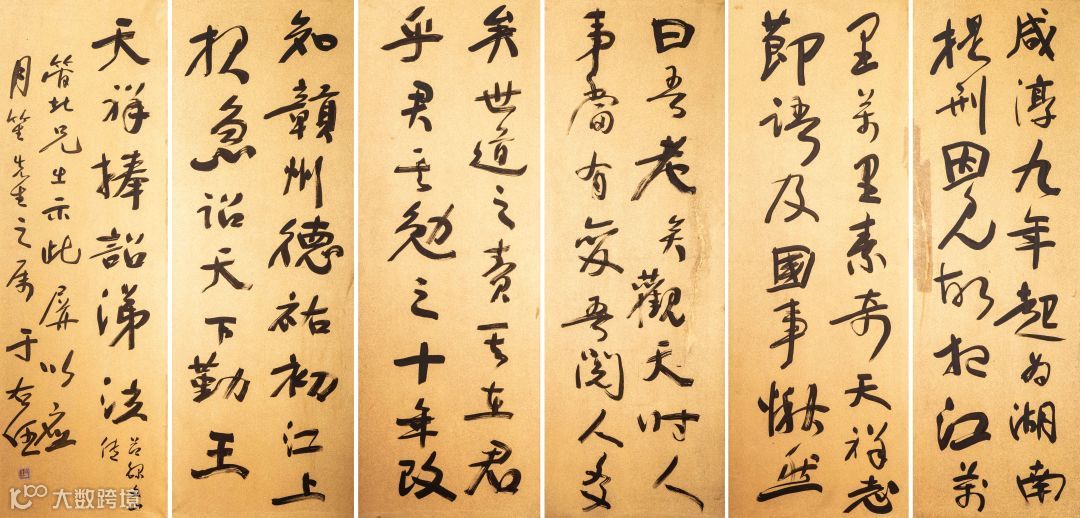 咸淳九年起为湖南
提刑因見故相江萬
里萬里素奇天祥志
節語及國事愀然
曰吾老矣觀天時人
事當有变吾閱人多
矣世道之責其在君
乎君其勉之十年改
知贛州德祐初江上
报急詔天下勤王
天祥捧詔涕泣
筱北兄出示此屏以應
月笙先生之属 于右任
大数跨境